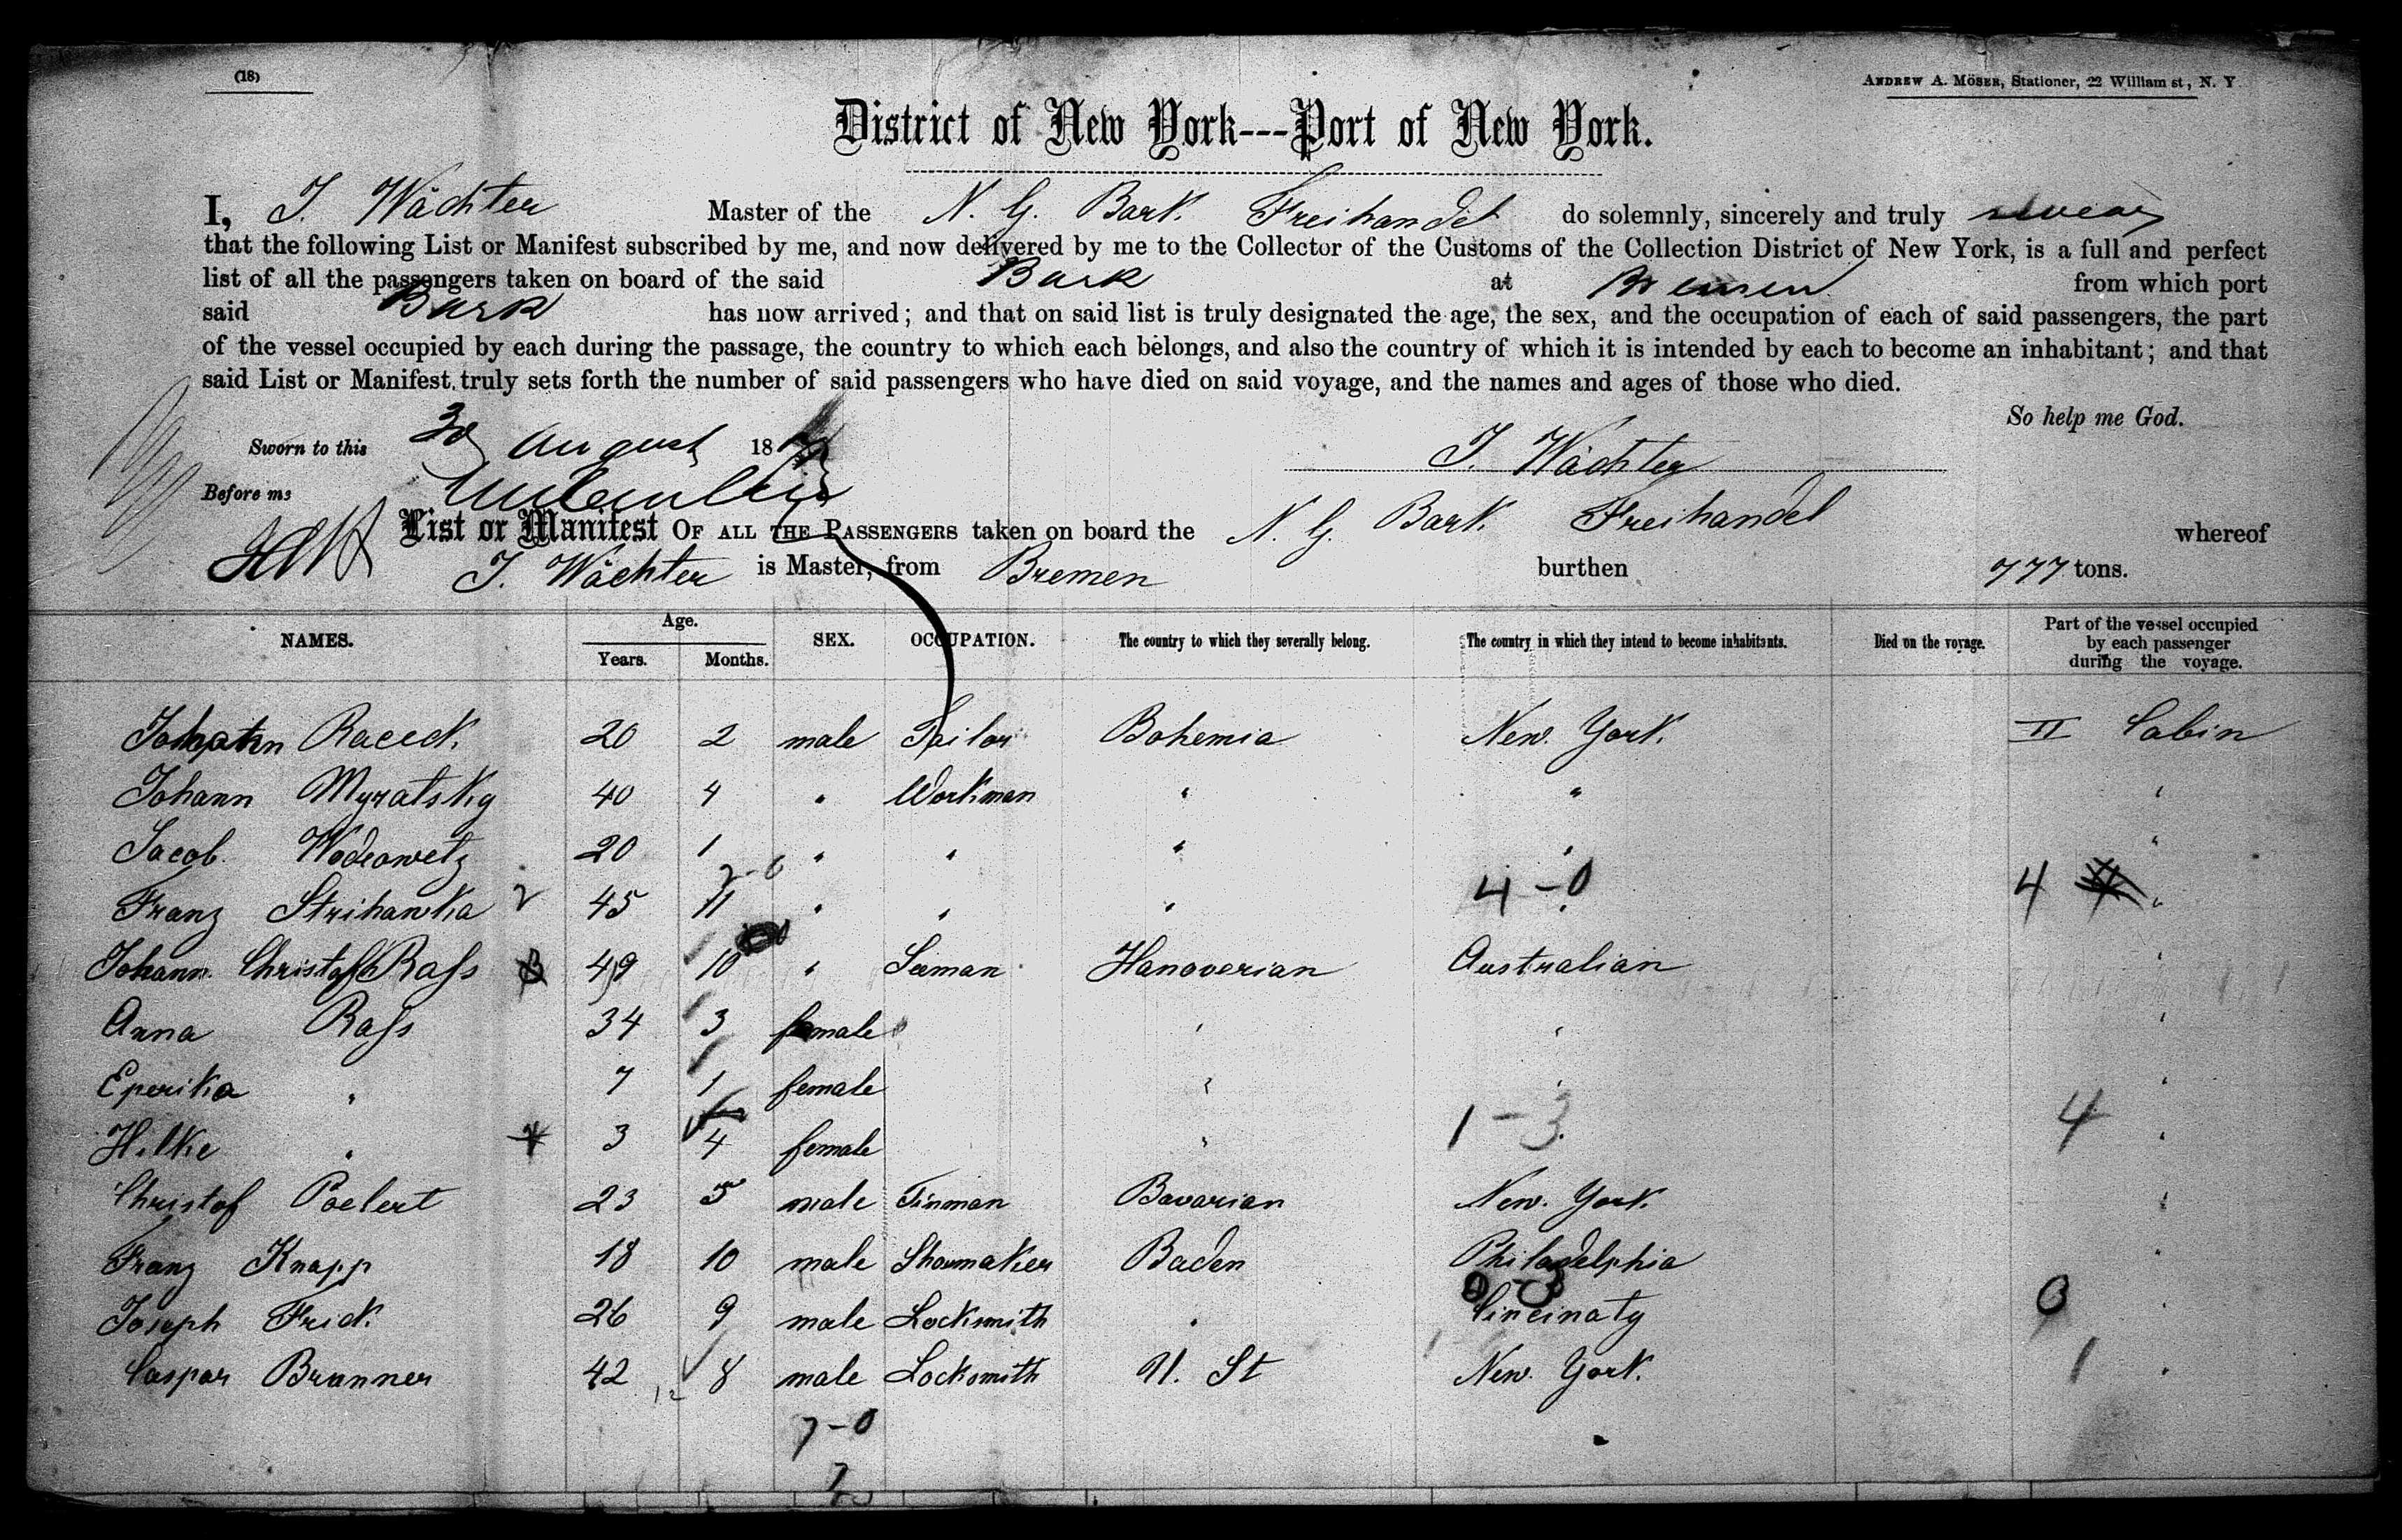 (18)
ANDREW A. MÖSER, Stationer, 22 William st, N. Y
District of New York---Port of New York.
I, J. Wächter Master of the N. G. Bark. Freihandel do solemnly, sincerely and truly swear
that the following List or Manifest subscribed by me, and now delivered by me to the Collector of the Customs of the Collection District of New York, is a full and perfect
list of all the passengers taken on board of the said Bark at Bremen from which port
said Bark has now arrived; and that on said list is truly designated the age, the sex, and the occupation of each of said passengers, the part
of the vessel occupied by each during the passage, the country to which each belongs, and also the country of which it is intended by each to become an inhabitant; and that
said List or Manifest truly sets forth the number of said passengers who have died on said voyage, and the names and ages of those who died.
So help me God.
Sworn to this 30 August 187
J. Wächter
Before me
List or Manifest OF ALL THE PASSENGERS taken on board the N. G. Bark. Freihandel whereof
J. Wächter is Master, from Bremen burthen 777 tons.
NAMES. Age. Years. Months. SEX. OCCUPATION. The country to which they severally belong. The country in which they intend to become inhabitants. Died on the voyage. Part of the vessel occupied by each passenger during the voyage.
Raceck. 20 2 male Tailor Bohemia New. York. II Cabin
Johann Myratsky 40 4 " Workman " " "
Jacob. Wodeowetz 20 1 " " " " "
2-0
Franz Strihawka 2 45 11 " " " 4-0 " 4 "
Johann. Christoph Rass 49 10 " Seeman Hanoverian Australian "
Anna Rass 34 3 female " " "
Eperika " 7 1 female " " "
Hilke " 3 4 female " 1-3 4 "
Christof Poelert 23 5 male Tinman Bavarian New. York. "
Franz Knapp 18 10 male Shoemaker Baden Philadelphia "
0-3
Joseph Frick. 26 9 male Locksmith " Cincinaty 0 "
Caspar Brunner 42 8 male Locksmith U. St New. York. 1 "
12
7-0